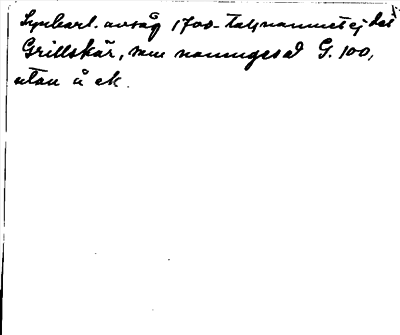 Synbart. avsåg 1700-talsnamnet ej det
Grillskär, som namnges å G. 100,
utan å ek.